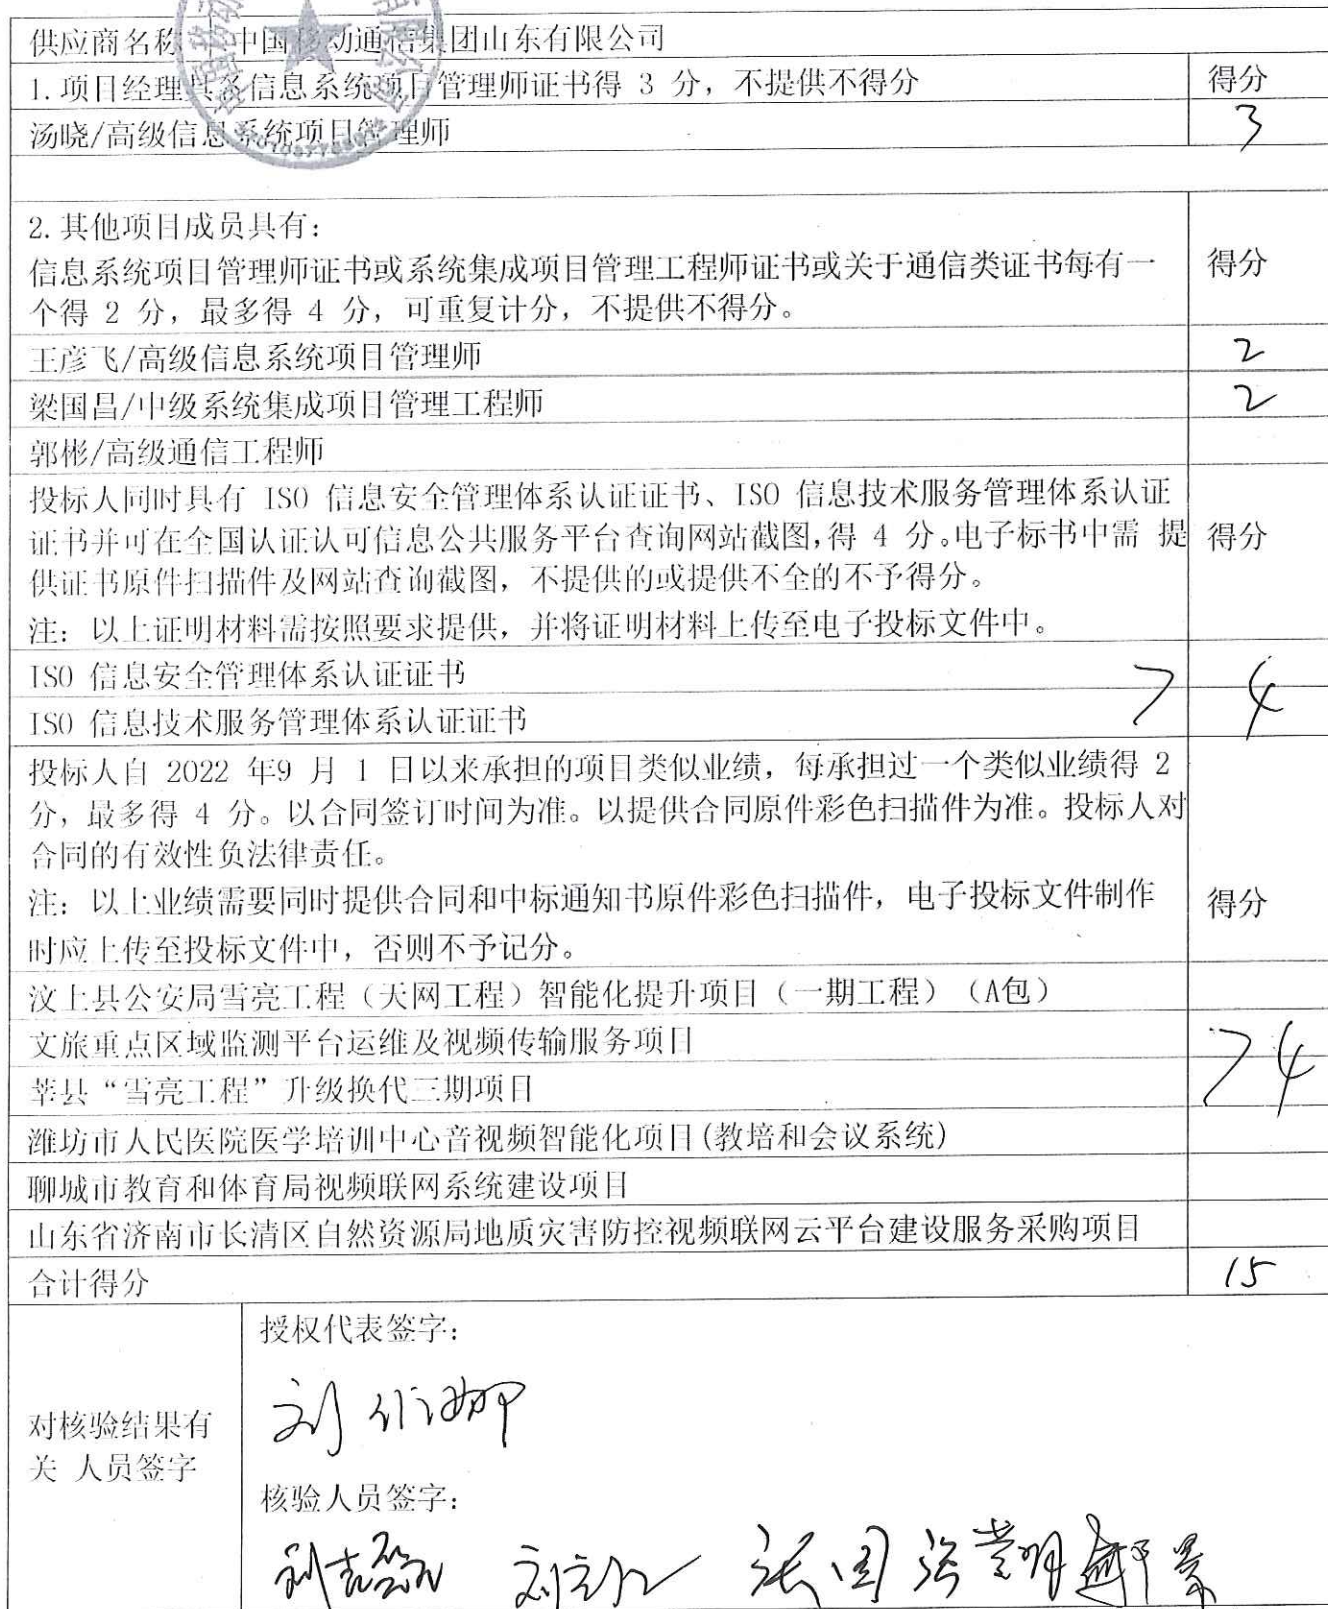 供应商名称 中国移动通信集团山东有限公司
1.项目经理具备信息系统项目管理师证书得 3 分，不提供不得分 得分
汤晓/高级信息系统项目管理师 3
2.其他项目成员具有：
信息系统项目管理师证书或系统集成项目管理工程师证书或关于通信类证书每有一 得分
个得 2 分，最多得 4 分，可重复计分，不提供不得分。
王彦飞/高级信息系统项目管理师 2
梁国昌/中级系统集成项目管理工程师 2
郭彬/高级通信工程师
投标人同时具有 ISO 信息安全管理体系认证证书、ISO 信息技术服务管理体系认证
证书并可在全国认证认可信息公共服务平台查询网站截图,得 4 分。电子标书中需 提 得分
供证书原件扫描件及网站查询截图，不提供的或提供不全的不予得分。
注：以上证明材料需按照要求提供，并将证明材料上传至电子投标文件中。
ISO 信息安全管理体系认证证书 4
ISO 信息技术服务管理体系认证证书
投标人自 2022 年9 月 1 日以来承担的项目类似业绩，每承担过一个类似业绩得 2
分，最多得 4 分。以合同签订时间为准。以提供合同原件彩色扫描件为准。投标人对
合同的有效性负法律责任。
注：以上业绩需要同时提供合同和中标通知书原件彩色扫描件，电子投标文件制作 得分
时应上传至投标文件中，否则不予记分。
汶上县公安局雪亮工程（天网工程）智能化提升项目（一期工程）（A包）
文旅重点区域监测平台运维及视频传输服务项目 4
莘县“雪亮工程”升级换代三期项目
潍坊市人民医院医学培训中心音视频智能化项目(教培和会议系统)
聊城市教育和体育局视频联网系统建设项目
山东省济南市长清区自然资源局地质灾害防控视频联网云平台建设服务采购项目
合计得分 15
授权代表签字：
对核验结果有
关 人员签字
核验人员签字：